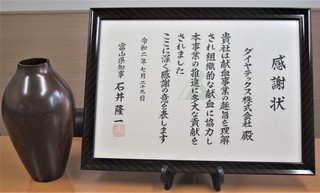 感謝状
ダイヤテックス株式会社 殿
貴社は献血事業の趣旨を理解
され組織的な献血に協力し
本事業の推進に多大な貢献を
されました
ここに深く感謝の意を表します
令和二年七月二十九日
富山県知事 石井隆一